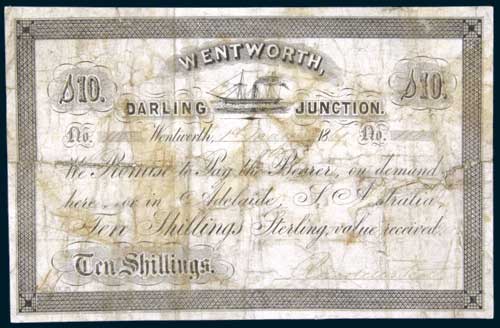 WENTWORTH,
S10. S10.
DARLING JUNCTION.
No. Wentworth, 18 No.
We Promise to Pay the Bearer, on demand
here or in Adelaide, S. Australia,
Ten Shillings Sterling, value received.
Ten Shillings.